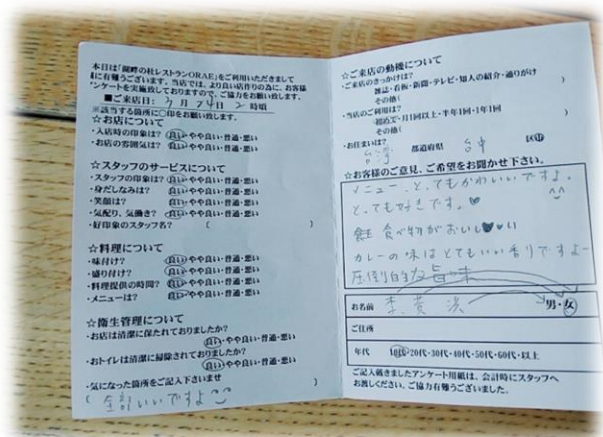 本日は「湖畔の杜レストランORAE」をご利用いただきまして
有難うございます。当店では、より良い店作りの為に、お客様
アンケートを実施致しておりますので、ご協力をお願い致します。
■ご来店日: 3月24日 2時頃
※該当する箇所に○印をお願い致します。
☆お店について
・入店時の印象は? 良い・やや良い・普通・悪い
・お店の雰囲気は? 良い・やや良い・普通・悪い
☆スタッフのサービスについて
・スタッフの印象は? 良い・やや良い・普通・悪い
・身だしなみは? 良い・やや良い・普通・悪い
・笑顔は? 良い・やや良い・普通・悪い
・気配り、気働き? 良い・やや良い・普通・悪い
・好印象のスタッフ名? ( )
☆料理について
・味付け? 良い・やや良い・普通・悪い
・盛り付け? 良い・やや良い・普通・悪い
・料理提供の時間? 良い・やや良い・普通・悪い
・メニューは? 良い・やや良い・普通・悪い
☆衛生管理について
・お店は清潔に保たれておりましたか?
良い・やや良い・普通・悪い
・おトイレは清潔に掃除されておりましたか?
良い・やや良い・普通・悪い
・気になった箇所をご記入下さいませ
( 全部いいですよ )
☆ご来店の動機について
・ご来店のきっかけは?
雑誌・看板・新聞・テレビ・知人の紹介・通りがけ
その他( )
・当店のご利用は?
初めて・月1回以上・半年1回・1年1回
その他( )
・お住まいは?
台湾 都道府県 台中
☆お客様のご意見、ご希望をお聞かせ下さい。
メニュー、とてもかわいいですよ。^^
とても好きです。♥
食べ物がおいし♥♥い
カレーの味はとてもいい香りですよー
圧倒的な旨味
お名前 李 男・女
ご住所
年代 10代・20代・30代・40代・50代・60代・以上
ご記入戴きましたアンケート用紙は、会計時にスタッフへ
お渡しください。ご協力有難うございました。